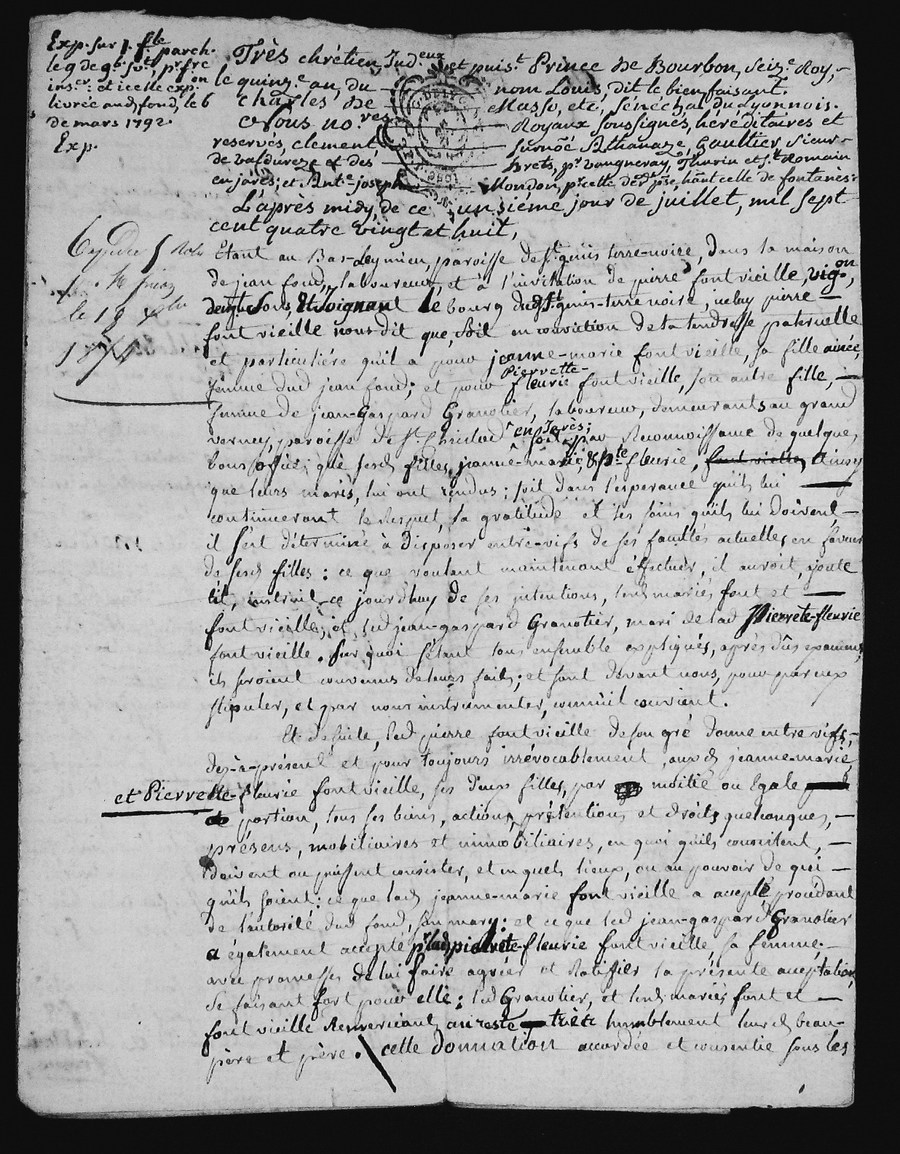 Exp. sur 1. fle parch.
le 9 de 9b.
livrée aud. fond, le 6
de mars 1792.
Exp.
Très chrétien, et puist. Prince de Bourbon, Seize. Roy,
le quinze. an du nom Louis, dit le bienfaisant.
Charles de Masso, etc, Sénéchal du Lyonnois.
Royaux soussignés, héréditaires et
reservés, clement Gaultier Sieur
de valdureze et des
en jarès; et Ante. joseph Mondon, pr. celle de fontanes.
L'après midy, de ce unsiéme jour de juillet, mil sept
cent quatre vingt et huit,
Expédié
le 19
Etant au Bas-Leymieu, paroisse de St. genis terre-noire, dans la maison
de jean fond, laboureur, et à l'invitation de pierre fontvieille, vigon,
Soignant le bourg dud. St. genis-terre noire, pierre
fontvieille nous dit que, soit en conviction de sa tendresse paternelle
et particulière qu'il a pour jeanne-marie fontvieille, sa fille ainée,
femme dud. jean fond; et pour Pierrette-
fleurie fontvieille, son autre fille,
femme de jean-Gaspard Granotier, laboureur, demeurants au grand
verney, paroisse de St. Christod en Jarès; soit par Reconnoissance de quelques
bons offices que fleurie, fontvieille, Ainsy
que leurs maris, lui ont rendus; soit dans l'esperance qu'ils lui
continueront le respect, la gratitude et les soins qu'ils lui doivent
il s'est déterminé à disposer entre-vifs de ses facultés actuelles, en faveur
de sesd. filles: ce que voulant maintenant éffectuer, il auroit
ce jourd'huy de ses intentions, lesd. mariés font et
fontvieille; et led. jean-gaspard Granotier, mari de lad. Pierrete-fleurie
fontvieille. Sur quoi s'étant tous ensemble expliqués, après dûs examens,
ils seroient convenus de leurs faits; et sont devant nous, pour par eux
stipuler, et par nous instrumenter, comm'il convient.
Et de suite, led. pierre fontvieille de son gré donne entre vifs,
des-à-présent et pour toujours irrévocablement, auxd. jeanne-marie
et Pierrette-fleurie fontvieille, ses deux filles, par moitié ou Egale
portion, tous ses biens, actions, prétentions et droits quelconques,
présens, mobiliaires et immobiliaires, en quoi qu'ils consistent,
doivent ou puissent consister, et en quels lieux, ou au pouvoir de qui
qu'ils soient: ce que lad. jeanne-marie fontvieille a accepté procédant
de l'autorité dud. fond, son mary; et ce que led. jean-gaspard Granotier
a également accepté pr. lad. pierrete-fleurie fontvieille sa femme.
avec promesse de lui faire agréer et Ratifier la présente acceptation,
se faisant fort pour elle; led. Granotier, et lesd. mariés font et
fontvieille Remerciant au reste très humblement leursd. beau-
père et père. cette donnation accordée et consentie sous les